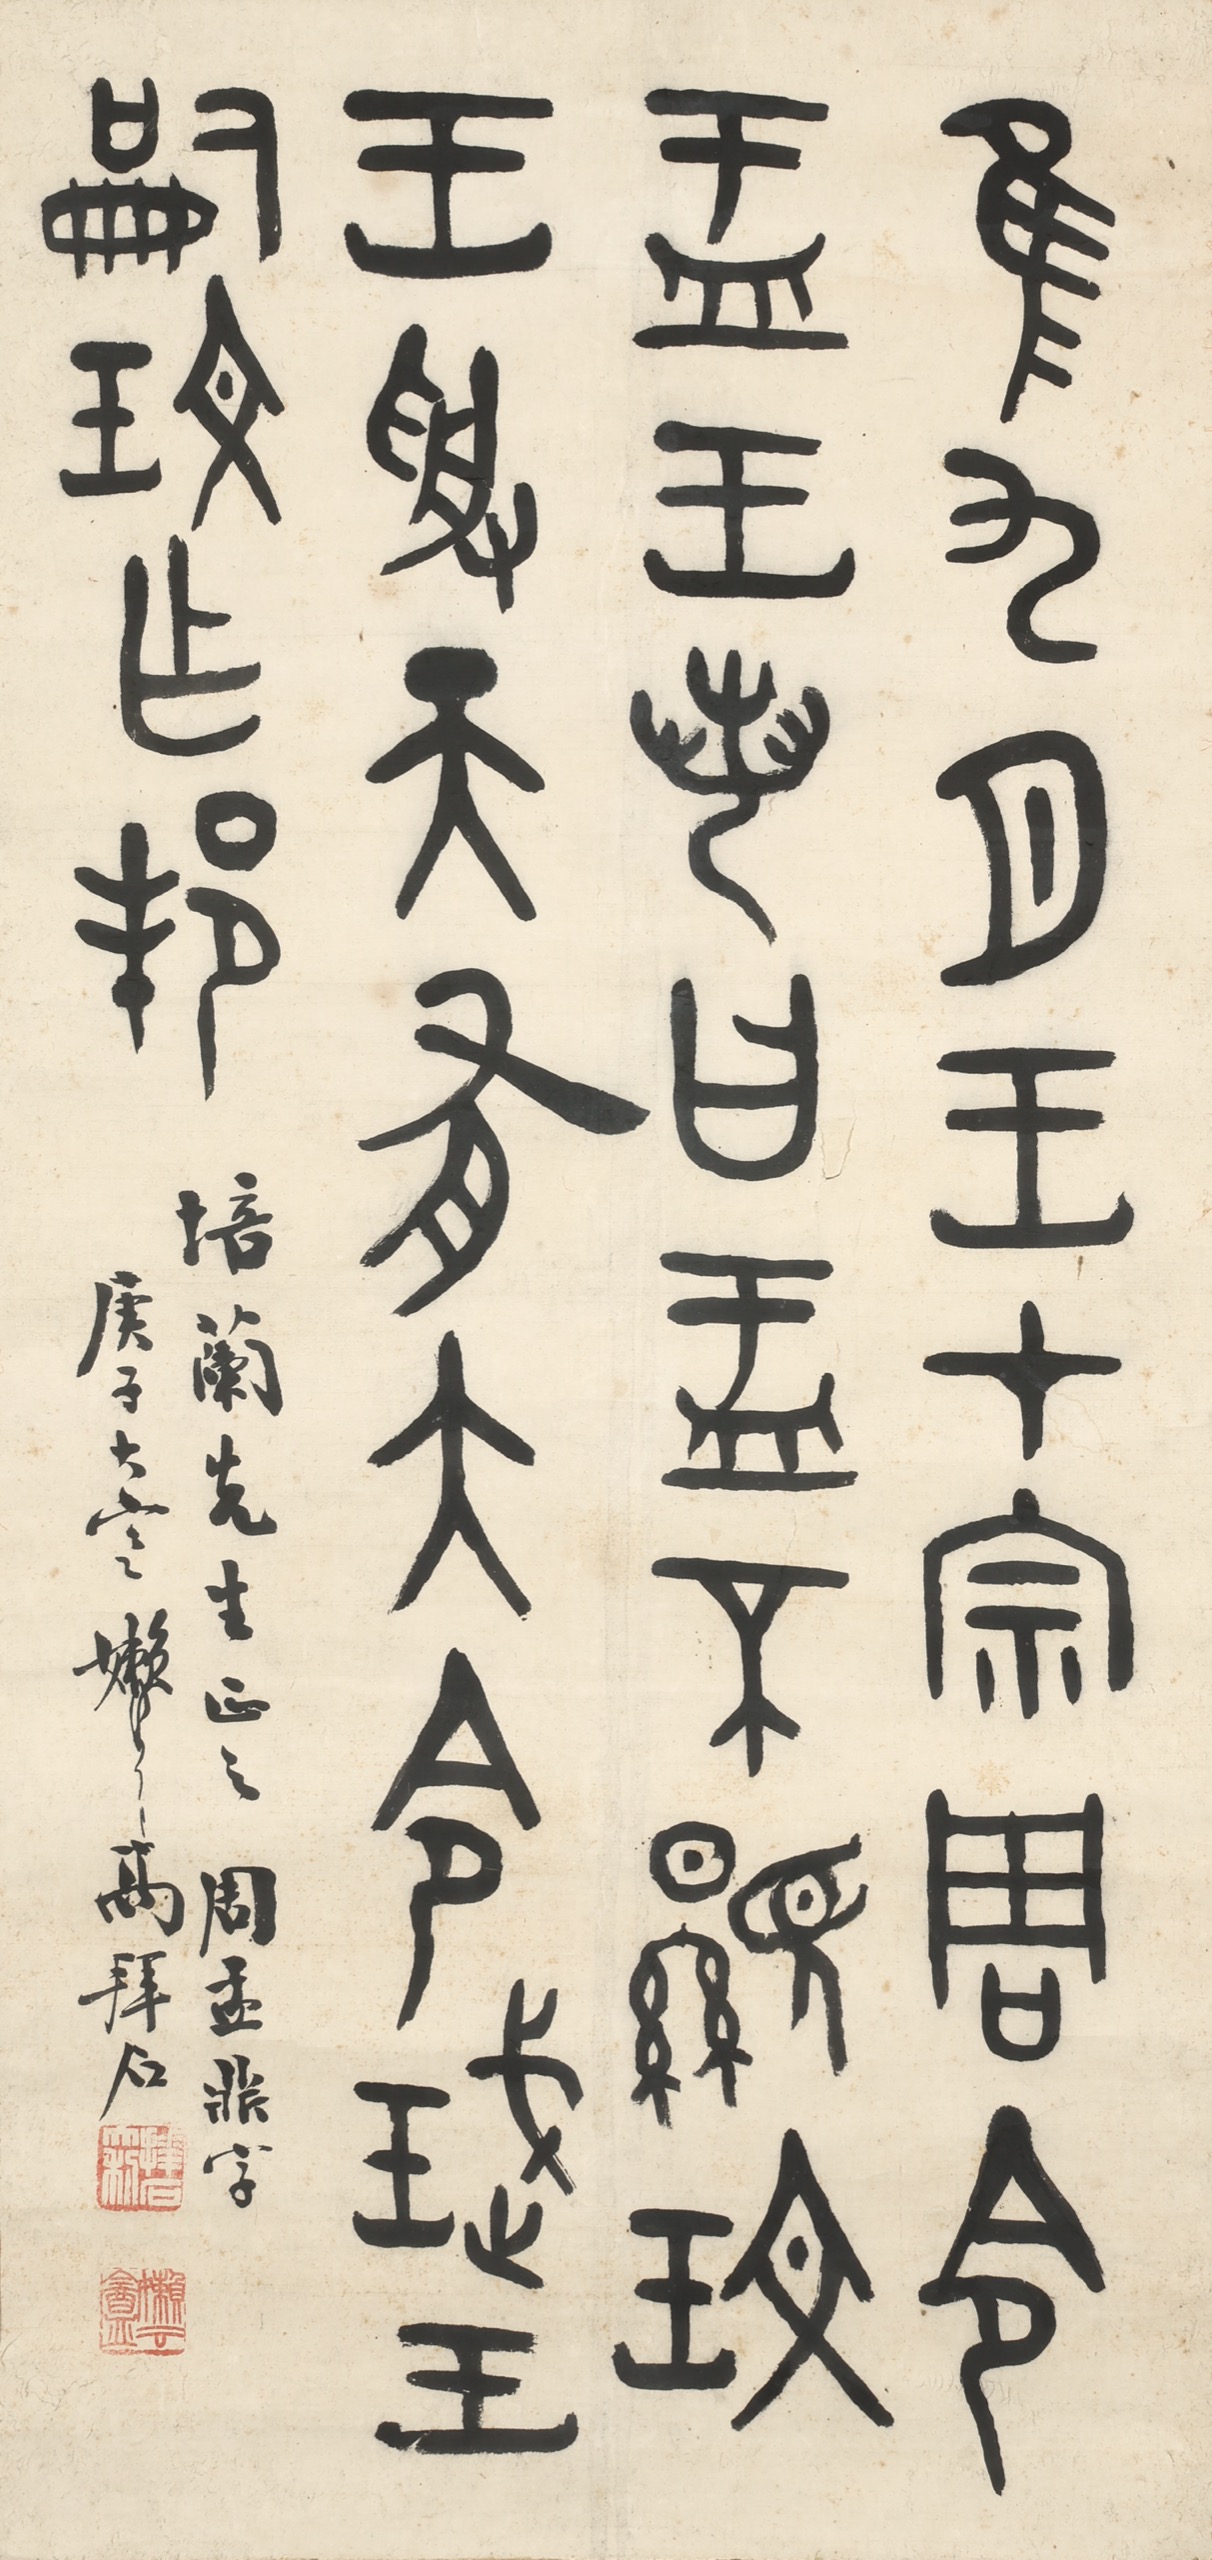 隹九月王才宗周令
盂王若曰盂不顯玟
王受天有大令珷王
嗣玟乍邦
培蘭先生正之 周盂鼎字
庚子大寒 嬾雲 高拜石